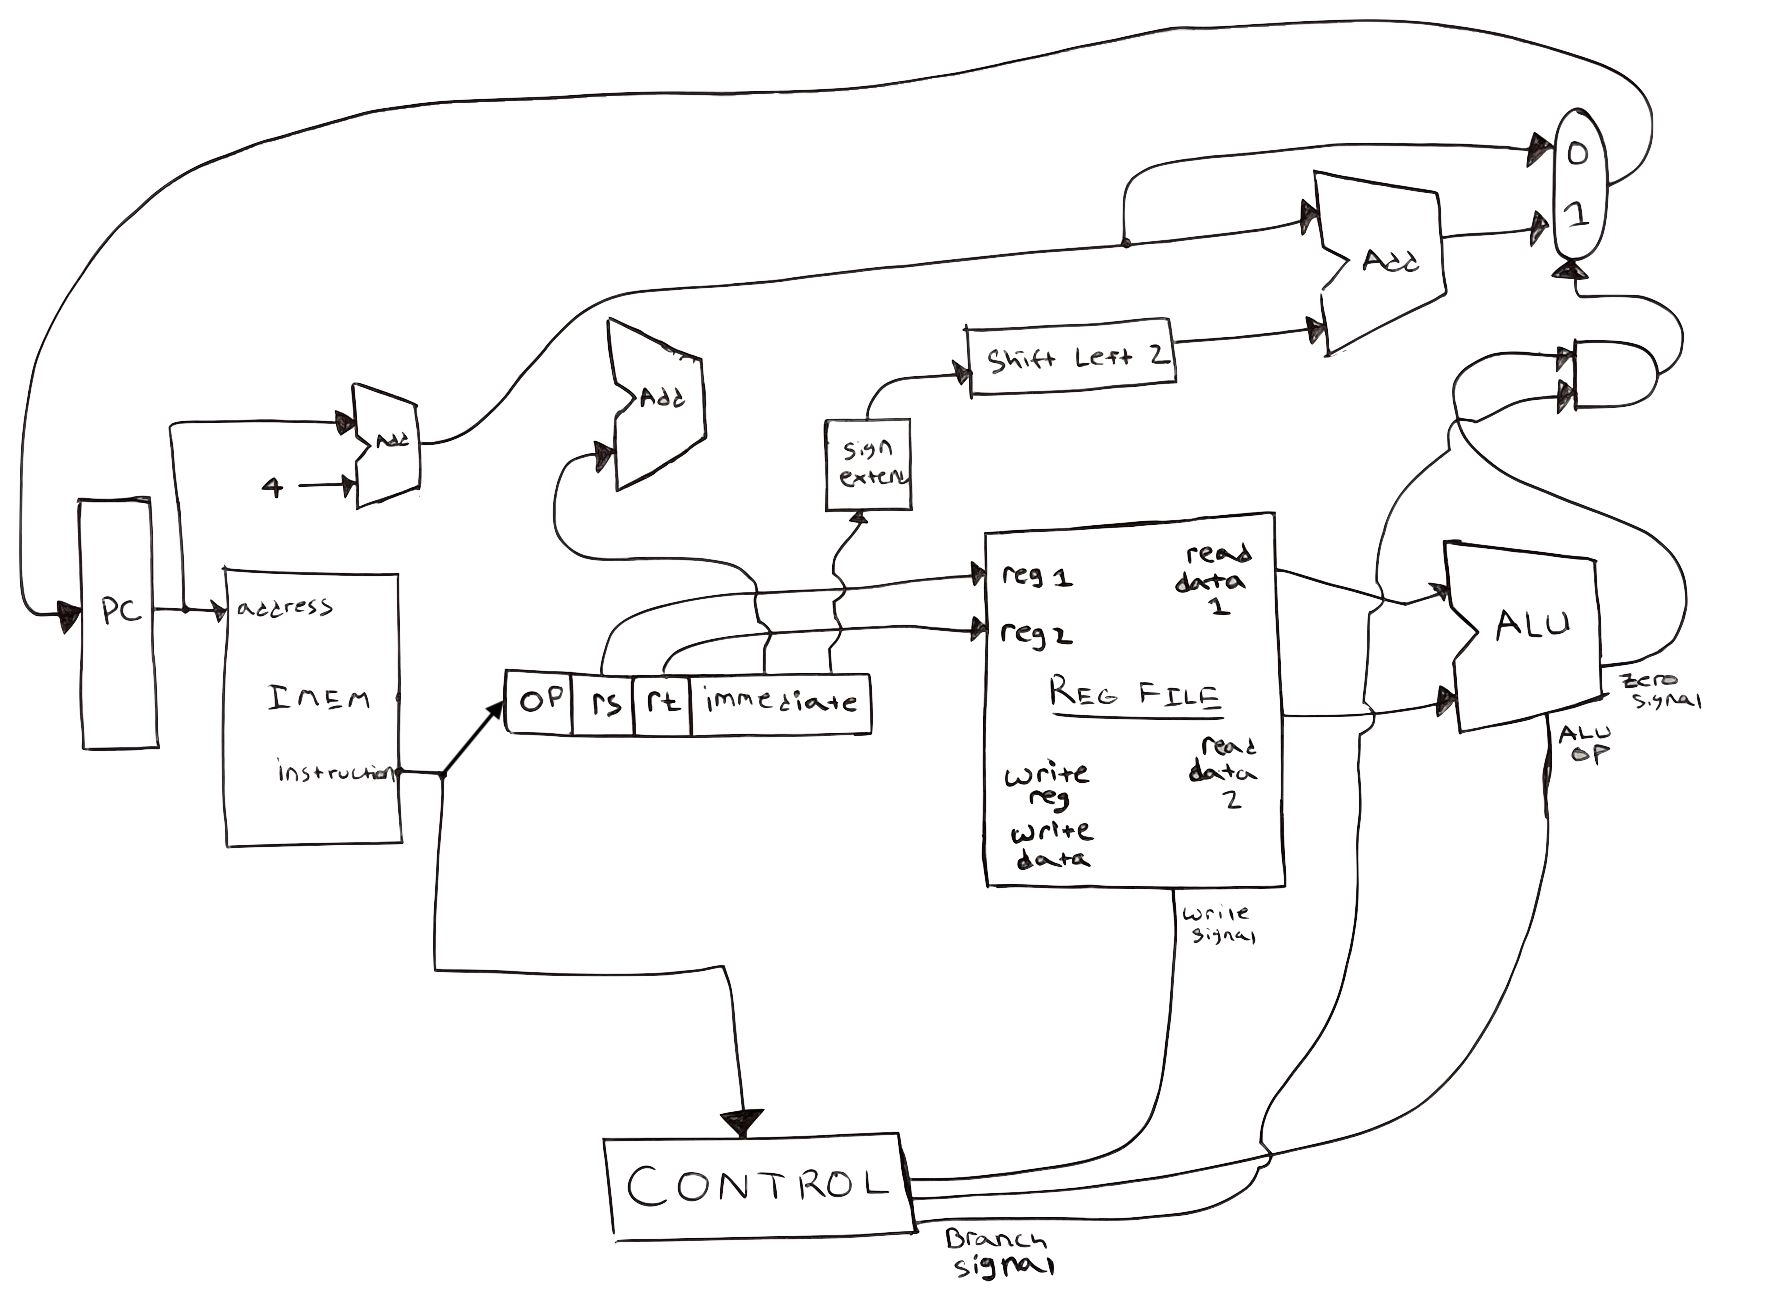 0
1
Add
Shift Left 2
Add
Add
4
sign
extend
PC
address
IMEM
instruction
OP rs rt immediate
reg 1
reg 2
read
data
1
REG FILE
read
data
2
write
reg
write
data
ALU
Zero
signal
ALU
OP
write
signal
CONTROL
Branch
signal